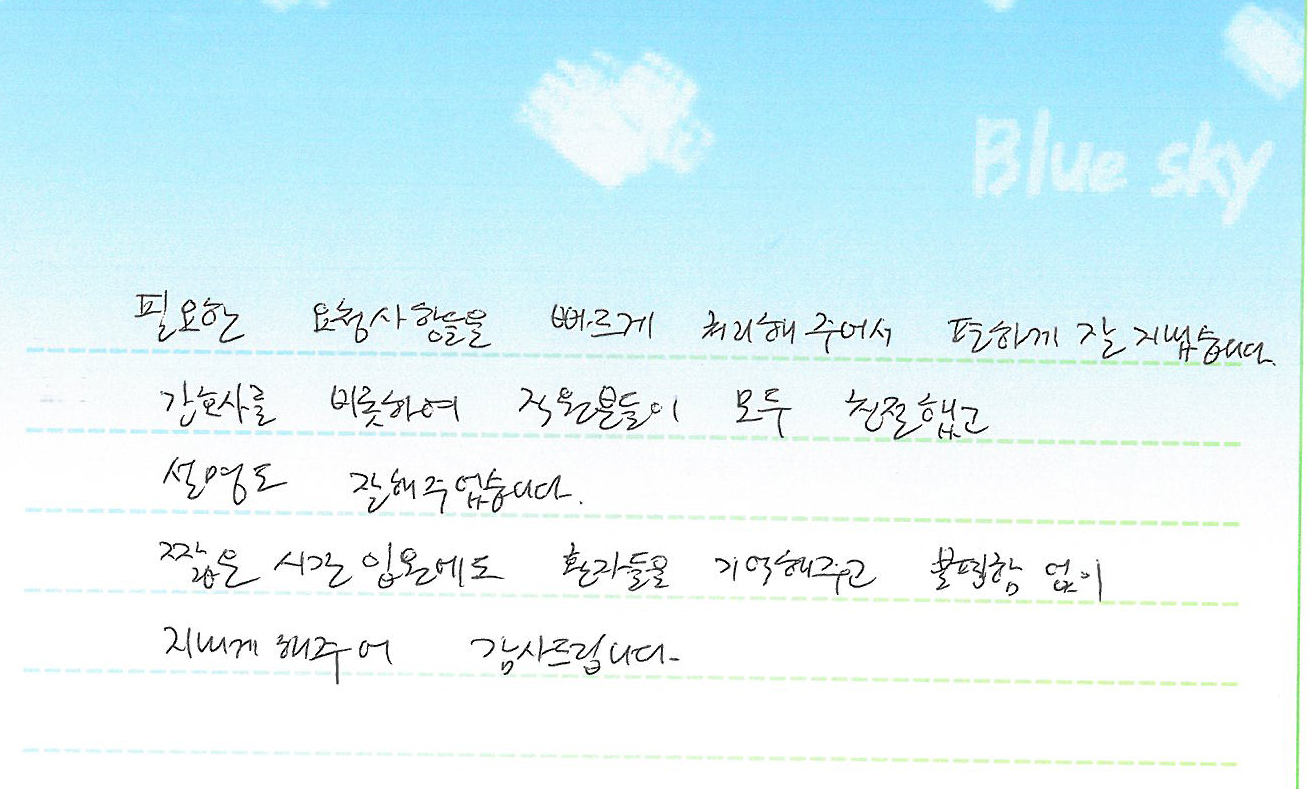 Blue sky
필요한 요청사항들을 빠르게 처리해 주어서 편하게 잘 지냈습니다.
간호사를 비롯하여 직원분들이 모두 친절했고
설명도 잘해주었습니다.
짧은 시간 입원에도 환자들을 기억해주고 불편함 없이
지내게 해주어 감사드립니다.